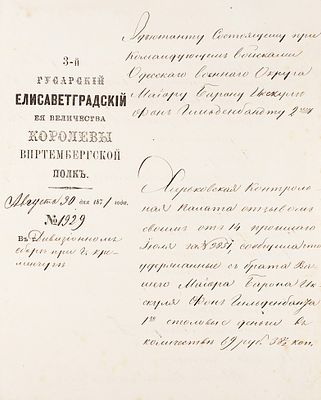 3-й
ГУСАРСКІЙ
ЕЛИСАВЕТГРАДСКІЙ
ЕЯ ВЕЛИЧЕСТВА
КОРОЛЕВЫ
ВИРТЕМБЕРГСКОЙ
ПОЛКЪ.
Августа 30 дня 1871 года.
№ 1929
Въ Дивизіонномъ
сборѣ при г. Кре-
менчугѣ
Адъютанту Состоящему при
Командующемъ войсками
Одесскаго военнаго Округа
Маіору Барону Икскуль
Фонъ Гильденбандту 2му
Харьковская Контроль-
ная Палата отзывомъ
своимъ отъ 14 прошлаго
Іюля за № сообщила, что
удержанные съ брата Ва-
шего Маіора Барона Ик-
скуля Фонъ Гильденбандта
1го столовые деньги въ
количествѣ 19 руб. 38½ коп.